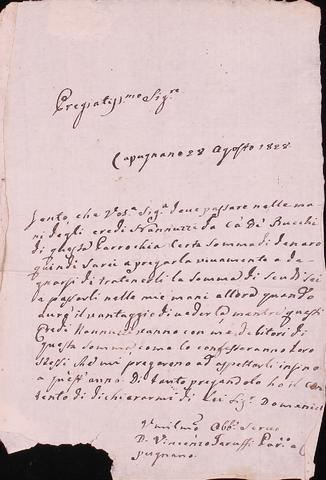 Pregiatissmo Sigre
Capugnano 28 Agosto 1828
Sento, che Vosa Siga deve passare nelle ma
ni degli eredi da Ca de Bucchi
di questa Parrochia certa somma di denaro
quindi sarei a pregarla vivamente a de
gnarsi di trattenerli la somma di scudi sei
e passarli nelle mie mani allorà quando
avrò il vantaggio di vederla mentre questi
Eredi sanno con me debitori di
questa somma come lo confessaranno loro
stessi che mi pregorono ad aspettarli insino
a quest'anno. Di tanto pregandolo ho il con
tento di dichiararmi di Lei Sigr Domanico
Umilmo Obbo Servo
D. Vincenzo Taruffi Paro a Ca
pugnano.